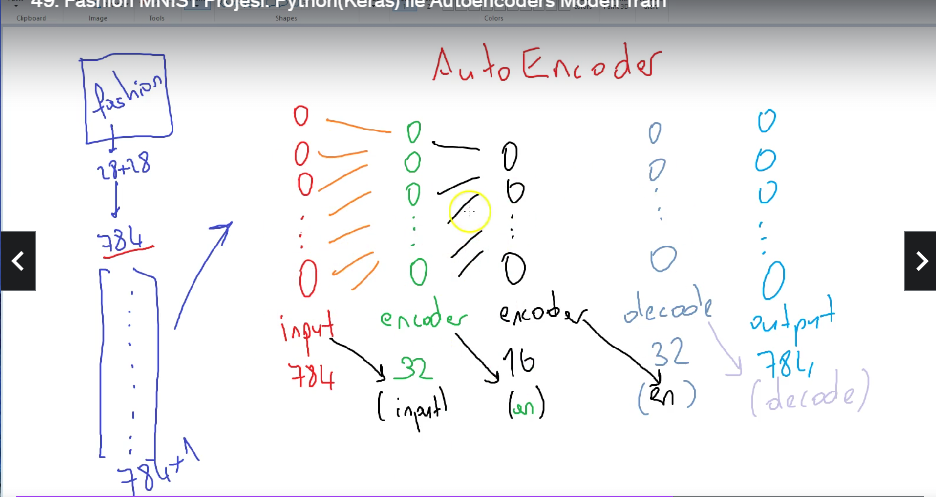 49. Fashion MNIST Projesi: Python(Keras) ile Autoencoders Modeli Train
Clipboard
Image
Tools
Shapes
Colors
AutoEncoder
fashion
28+28
784
784+1
input
784
encoder
32
(input)
encoder
16
(en)
decode
32
(en)
output
784,
(decode)